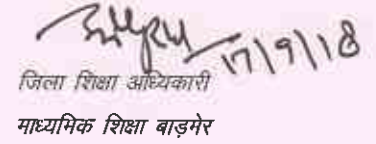 17/9/18
जिला शिक्षा अधिकारी
माध्यमिक शिक्षा बाड़मेर